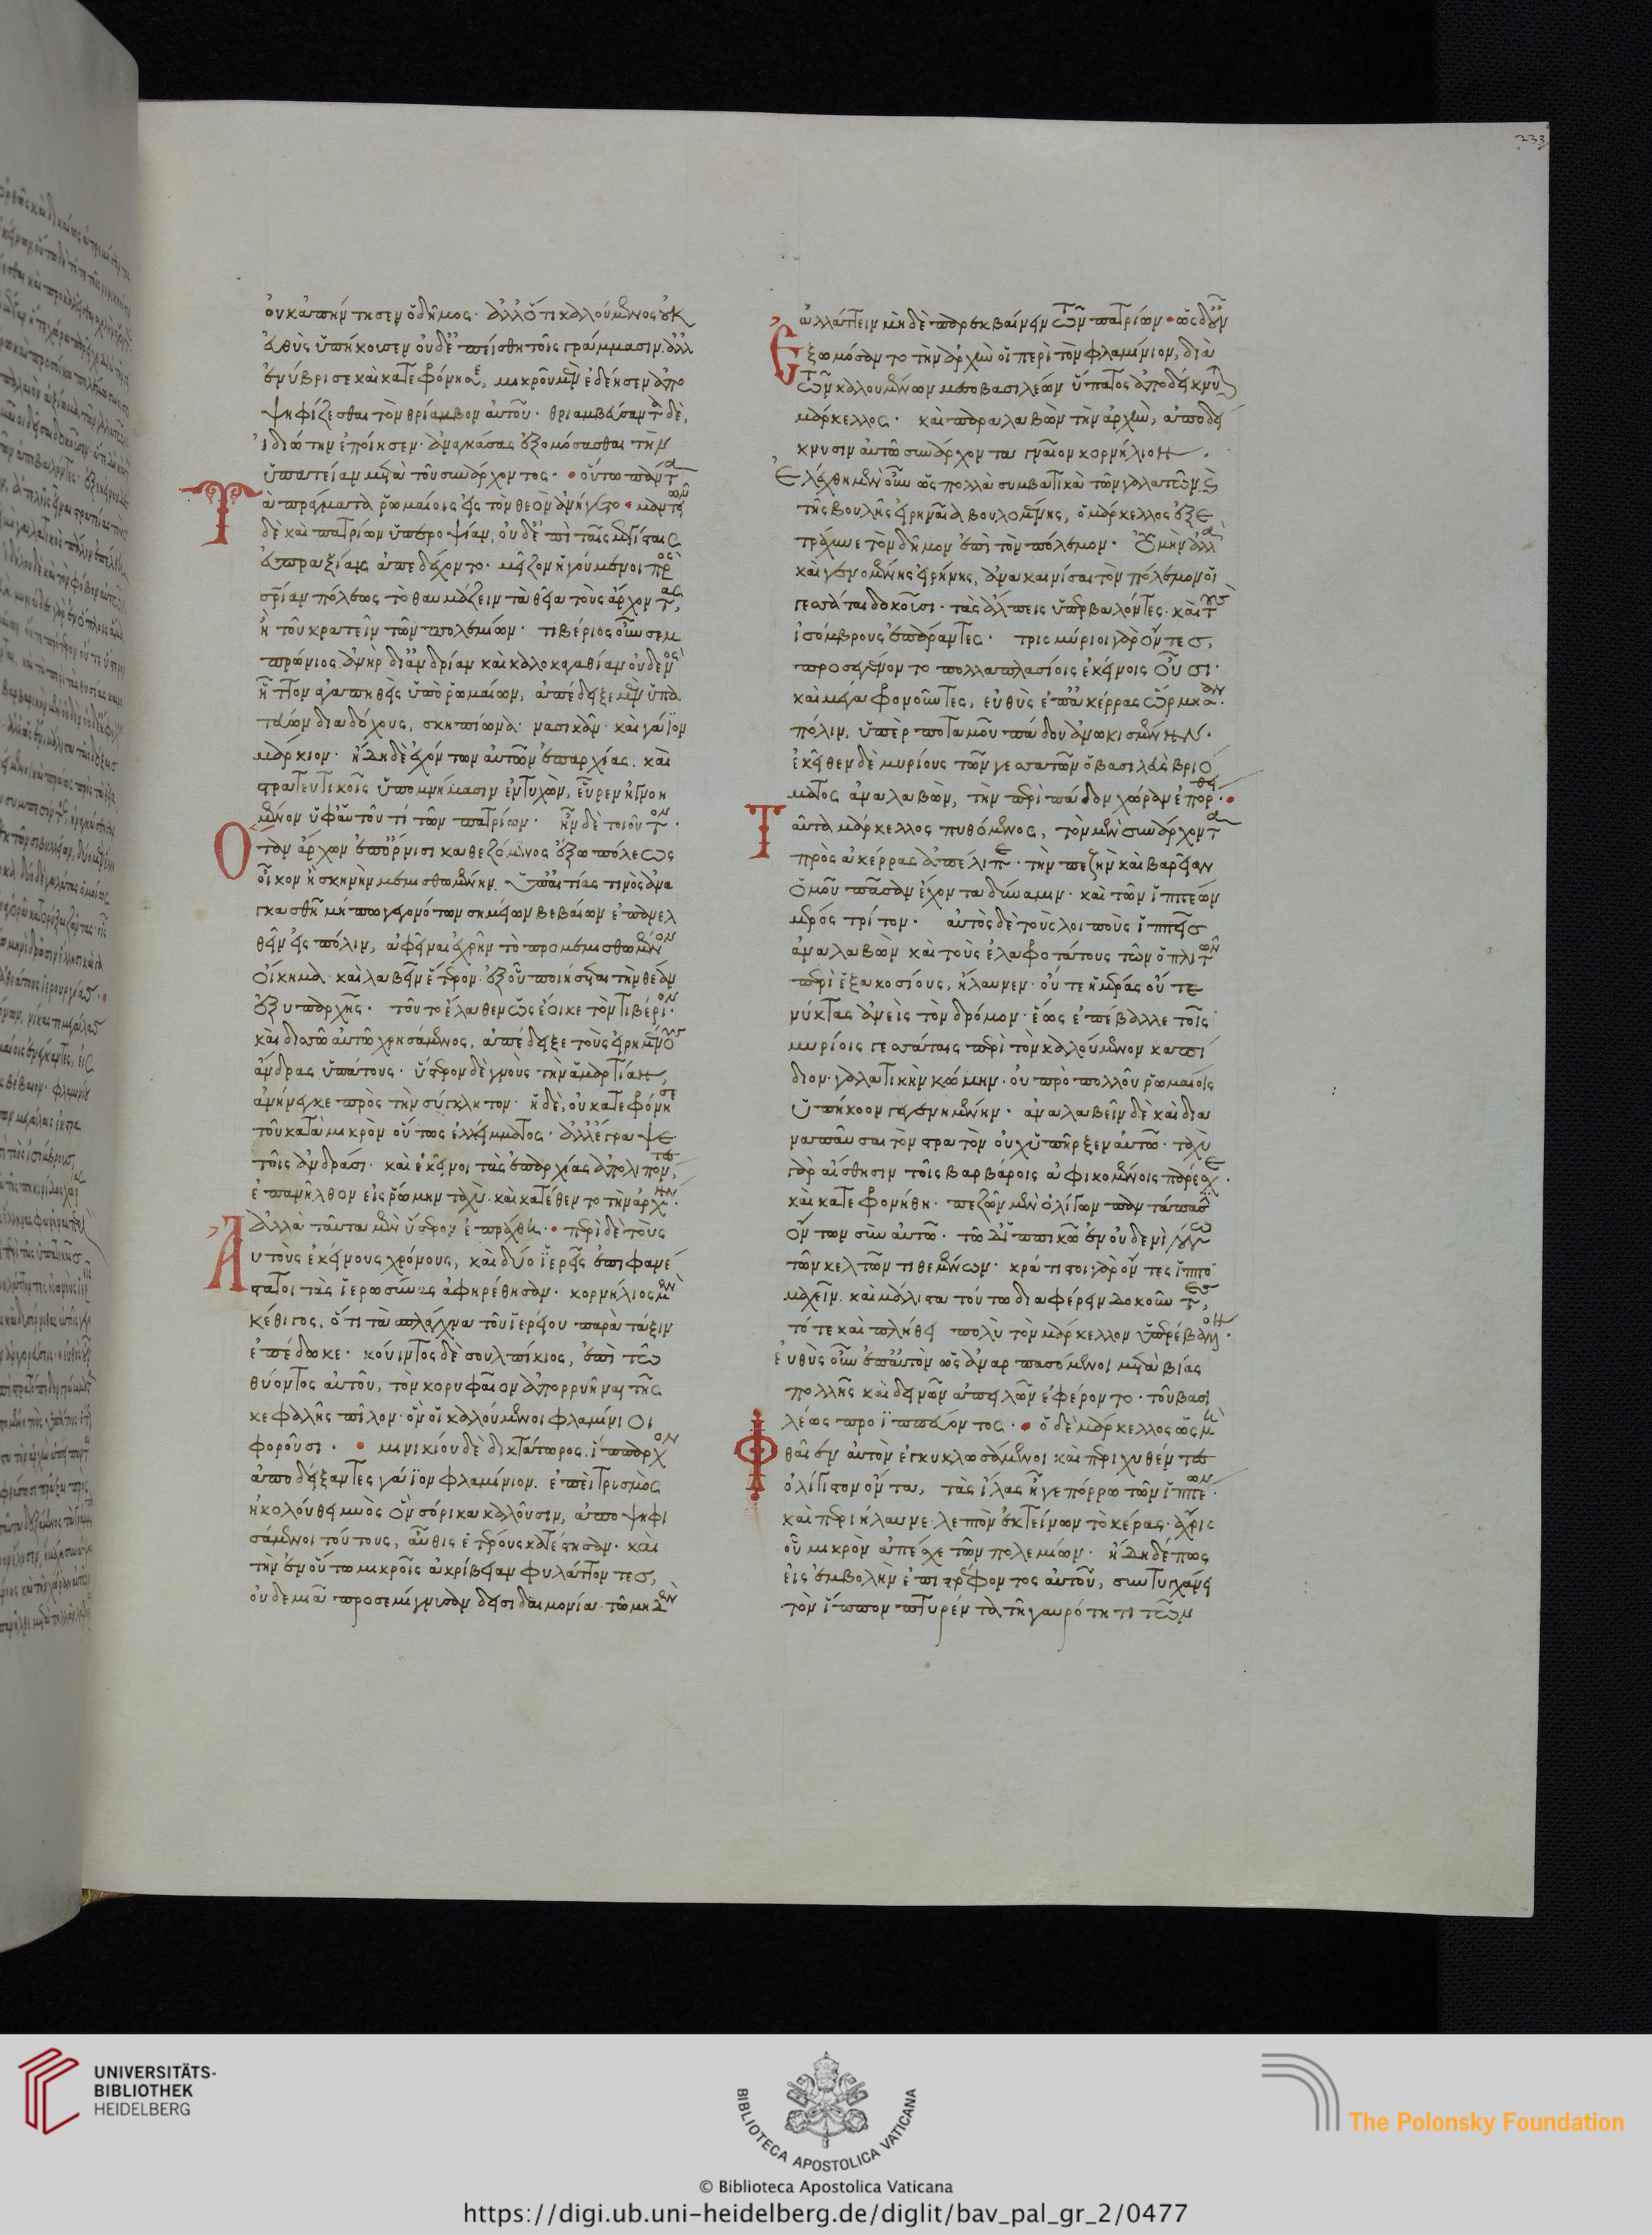 οὐκ ἀπήντησεν ὁ δῆμος· ἀλλ' ὅτι καλούμενος οὐκ
εὐθὺς ὑπήκουσεν οὐδ' ἐπείσθη τοῖς γράμμασιν. ἀλλ'
ἐνύβρισε καὶ κατεφρόνησε, μικροῦ μὲν ἐδέησεν ἀπο
ψηφίζεσθαι τὸν θρίαμβον αὐτοῦ· θριαμβεύσαντα δὲ,
ἰδιώτην ἐποίησεν· ἀναγκάσας ἐξομόσασθαι τὴν
ὑπατείαν μετὰ τοῦ συνάρχοντος· οὕτω πάντα
τὰ πράγματα ῥωμαίοις εἰς τὸν θεὸν ἀνήγετο· μαντειῶν
δὲ καὶ πατρίων ὑπεροψίαν, οὐδ' ἐπὶ ταῖς μεγίσταις
εὐπραξίαις ἀπεδέχοντο· μεῖζον ἡγούμενοι πρὸς
σωτηρίαν πόλεως τὸ θαυμάζειν τὰ θεῖα τοὺς ἄρχοντας,
ἢ τοῦ κρατεῖν τῶν πολεμίων· τιβέριος οὖν σεμ
πρώνιος ἀνὴρ δι' ἀνδρίαν καὶ καλοκαγαθίαν οὐδενὸς
ἧττον ἀγαπηθεὶς ὑπὸ ῥωμαίων, ἀπέδειξε μὲν ὑπα
τεύων διαδόχους, σκηπίωνα νασικᾶν καὶ γάϊον
μάρκιον· ἤδη δὲ ἐχόντων αὐτῶν ἐπαρχίας. καὶ
στρατευτικοῖς ὑπομνήμασιν ἐντυχὼν, εὗρεν ἠγνοη
μένον ὑφ' αὑτοῦ τι τῶν πατρίων· ἦν δὲ τοιοῦτον·
ὅταν ἄρχων ἐπ' ὄρνισι καθεζόμενος ἔξω πόλεως
οἶκον ἢ σκηνὴν μεμισθωμένην. ὑπ' αἰτίας τινὸς ἀνα
γκασθῆ μήπω γεγονότων σημείων βεβαίων ἐπανελ
θεῖν εἰς πόλιν, ἀφεῖναι ἐχρῆν τὸ προμεμισθωμένον
οἴκημα· καὶ λαβεῖν ἕτερον· ἐξ οὗ ποιήσεται τὴν θέαν
ἐξ ὑπαρχῆς· τοῦτο ἔλαθεν ὡς ἔοικε τὸν τιβέριον·
καὶ δὶς τῶ αὐτῶ χρησάμενος, ἀπέδειξε τοὺς εἰρημένους
ἄνδρας ὑπάτους· ὕστερον δὲ γνοὺς τὴν ἁμαρτίαν,
ἀνήνεγκε πρὸς τὴν σύγκλητον· ἡ δὲ, οὐ κατεφρόνησε
τοῦ κατὰ μικρὸν οὕτως ἐλλείμματος· ἀλλ' ἔγραψε
τοῖς ἀνδράσι· καὶ ἐκεῖνοι τὰς ἐπαρχίας ἀπολιπόντες,
ἐπανῆλθον εἰς ῥώμην ταχὺ· καὶ κατέθεντο τὴν ἀρχήν·
ἀλλὰ ταῦτα μὲν ὕστερον ἐπράχθη· περὶ δὲ τοὺς
Αὐτοὺς ἐκείνους χρόνους, καὶ δύο ἱερεῖς ἐπιφανέ
στατοι τὰς ἱερωσύνας ἀφηρέθησαν· κορνήλιος μὲν
κέθιγος, ὅτι τὰ σπλάγχνα τοῦ ἱερείου παρὰ τάξιν
ἐπέδωκε· κούιντος δὲ σουλπίκιος, ἐπὶ τῶ
θύοντος αὐτοῦ, τὸν κορυφαῖον ἀπορρυῆναι τῆς
κεφαλῆς πῖλον· ὃν οἱ καλούμενοι φλαμίνιοι
φοροῦσι· μινικίου δὲ δικτάτωρος. ἵππαρχον
ἀποδείξαντες γάϊον φλαμίνιον. ἐπεὶ τρισμὸς
ἠκολούθει μυὸς ὃν σόρικα καλοῦσιν, ἀποψηφι
σάμενοι τούτους, αὖθις ἑτέρους κατέστησαν· καὶ
τὴν ἐν οὕτω μικροῖς ἀκρίβειαν φυλάττοντες,
οὐδεμιᾶ προσεμίγνυσαν δεισιδαιμονία· τῶ μηδὲν
ἀλλάττειν μηδὲ παρεκβαίνειν τῶν πατρίων· ὡς δ' οὖν
Ἐξωμόσαντο τὴν ἀρχὴν οἱ περὶ τὸν φλαμίνιον, διὰ
τῶν καλουμένων μεσοβασιλέων ὕπατος ἀποδείκνυται
μάρκελλος· καὶ παραλαβὼν τὴν ἀρχὴν, ἀποδεί
κνυσιν αὐτῶ συνάρχοντα γναῖον κορνήλιον.
Ἐλέχθη μὲν οὖν ὡς πολλὰ συμβατικὰ τῶν γαλατῶν καὶ
τῆς βουλῆς εἰρηναῖα βουλομένης, ὁ μάρκελλος ἐξε
τράχυνε τὸν δῆμον ἐπὶ τὸν πόλεμον· οὐ μὴν ἀλλὰ
καὶ γενομένης εἰρήνης, ἀνακαινίσαι τὸν πόλεμον οἱ
γεσάται δοκοῦσι· τὰς ἄλπεις ὑπερβαλόντες· καὶ τοὺς
ἰσόμβρους ἐπάραντες· τρισμύριοι γὰρ ὄντες,
προσεγένοντο πολλαπλασίοις ἐκείνοις οὖσι·
καὶ μέγα φρονοῦντες, εὐθὺς ἐπ' ἀκέρρας ὥρμησαν·
πόλιν, ὑπὲρ ποταμοῦ πάδου ἀνῳκισμένην·
ἐκεῖθεν δὲ μυρίους τῶν γεσατῶν ὁ βασιλεὺς βριτό
ματος ἀναλαβὼν, τὴν περὶ πάδον χώραν ἐπόρθει·
Ταῦτα μάρκελλος πυθόμενος, τὸν μὲν συνάρχοντα
πρὸς ἀκέρρας ἀπέλιπε· τὴν πεζὴν καὶ βαρεῖαν
ὁμοῦ πᾶσαν ἔχοντα δύναμιν· καὶ τῶν ἱππέων
μέρος τρίτον· αὐτὸς δὲ τοὺς λοιποὺς ἱππεῖς
ἀναλαβὼν καὶ τοὺς ἐλαφροτάτους τῶν ὁπλιτῶν
περὶ ἑξακοσίους, ἤλαυνεν· οὔτε ἡμέρας οὔτε
νύκτας ἀνεὶς τὸν δρόμον· ἕως ἐπέβαλλε τοῖς
μυρίοις γεσάταις περὶ τὸν καλούμενον κασπί
διον· γαλατικὴν κώμην· οὐ πρὸ πολλοῦ ῥωμαίοις
ὑπήκοον γεγενημένην· ἀναλαβεῖν δὲ καὶ δια
ναπαῦσαι τὸν στρατὸν οὐχ ὑπῆρξεν αὐτῶ· ταχὺ
γὰρ αἴσθησιν τοῖς βαρβάροις ἀφικομένοις παρέσχε·
καὶ κατεφρονήθη· πεζῶν μὲν ὀλίγων παντάπασιν
ὄντων σὺν αὐτῶ· τὸ δ' ἱππικὸν ἐν οὐδενὶ λόγω
τῶν κελτῶν τιθεμένων· κράτιστοι γὰρ ὄντες ἱππο
μαχεῖν. καὶ μάλιστα τούτω διαφέρειν δοκοῦντες,
τότε καὶ πλήθει πολὺ τὸν μάρκελλον ὑπερέβαλλον·
εὐθὺς οὖν ἐπ' αὐτὸν ὡς ἀναρπασόμενοι μετὰ βίας
πολλῆς καὶ δεινῶν ἀπειλῶν ἐφέροντο· τοῦ βασι
λέως προϊππεύοντος· ὁ δὲ μάρκελλος ὡς μὴ
Φθαῖεν αὐτὸν ἐγκυκλωσάμενοι καὶ περιχυθέντες
ὀλιγοστὸν ὄντα, τὰς ἴλας ἦγε πόρρω τῶν ἱππέων·
καὶ περιήλαυνε· λεπτὸν ἐκτείνων τὸ κέρας· ἄχρις
οὗ μικρὸν ἀπέσχε τῶν πολεμίων· ἤδη δέ πως
εἰς ἐμβολὴν ἐπιστρέφοντος αὐτοῦ, συντυγχάνει
τὸν ἵππον πτυρέντα τῆ γαυρότητι τῶν
UNIVERSITÄTS-
BIBLIOTHEK
HEIDELBERG
BIBLIOTECA APOSTOLICA VATICANA
The Polonsky Foundation
© Biblioteca Apostolica Vaticana
https://digi.ub.uni-heidelberg.de/diglit/bav_pal_gr_2/0477